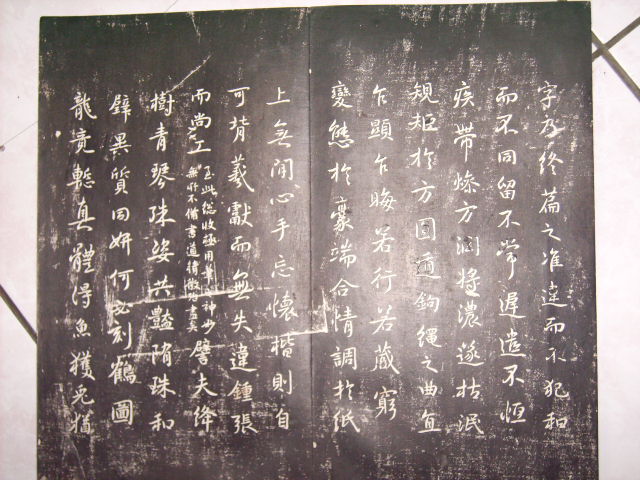 字乃終篇之准違而不犯和
而不同留不常遲遣不恒
疾帶燥方潤將濃遂枯泯
規矩於方圓遁鉤繩之曲直
乍顯乍晦若行若藏窮
變態於豪端合情調於紙
上無間心手忘懷楷則自
可背羲獻而無失違鍾張
而尚工
至此總收極用筆之神妙
無所不備書道微殆盡矣
譬夫絳
樹青琴殊姿共豔隋珠和
璧異質同妍何必刻鶴圖
龍竟慙真體得魚獲兔猶